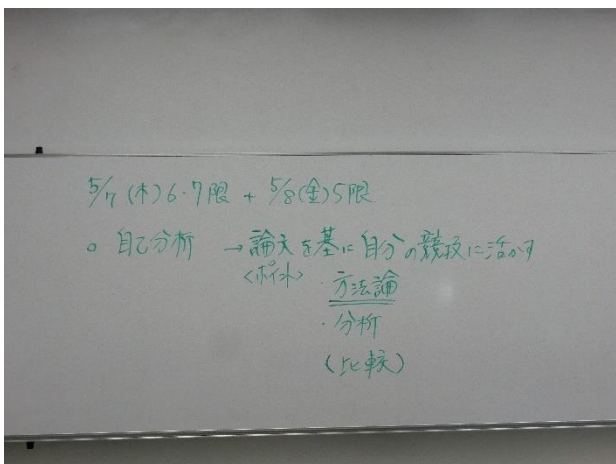 5/7 (木) 6・7限 + 5/8 (金) 5限
○ 自己分析 → 論文を基に自分の競技に活かす
<ポイント> ・方法論
・分析
(比較)